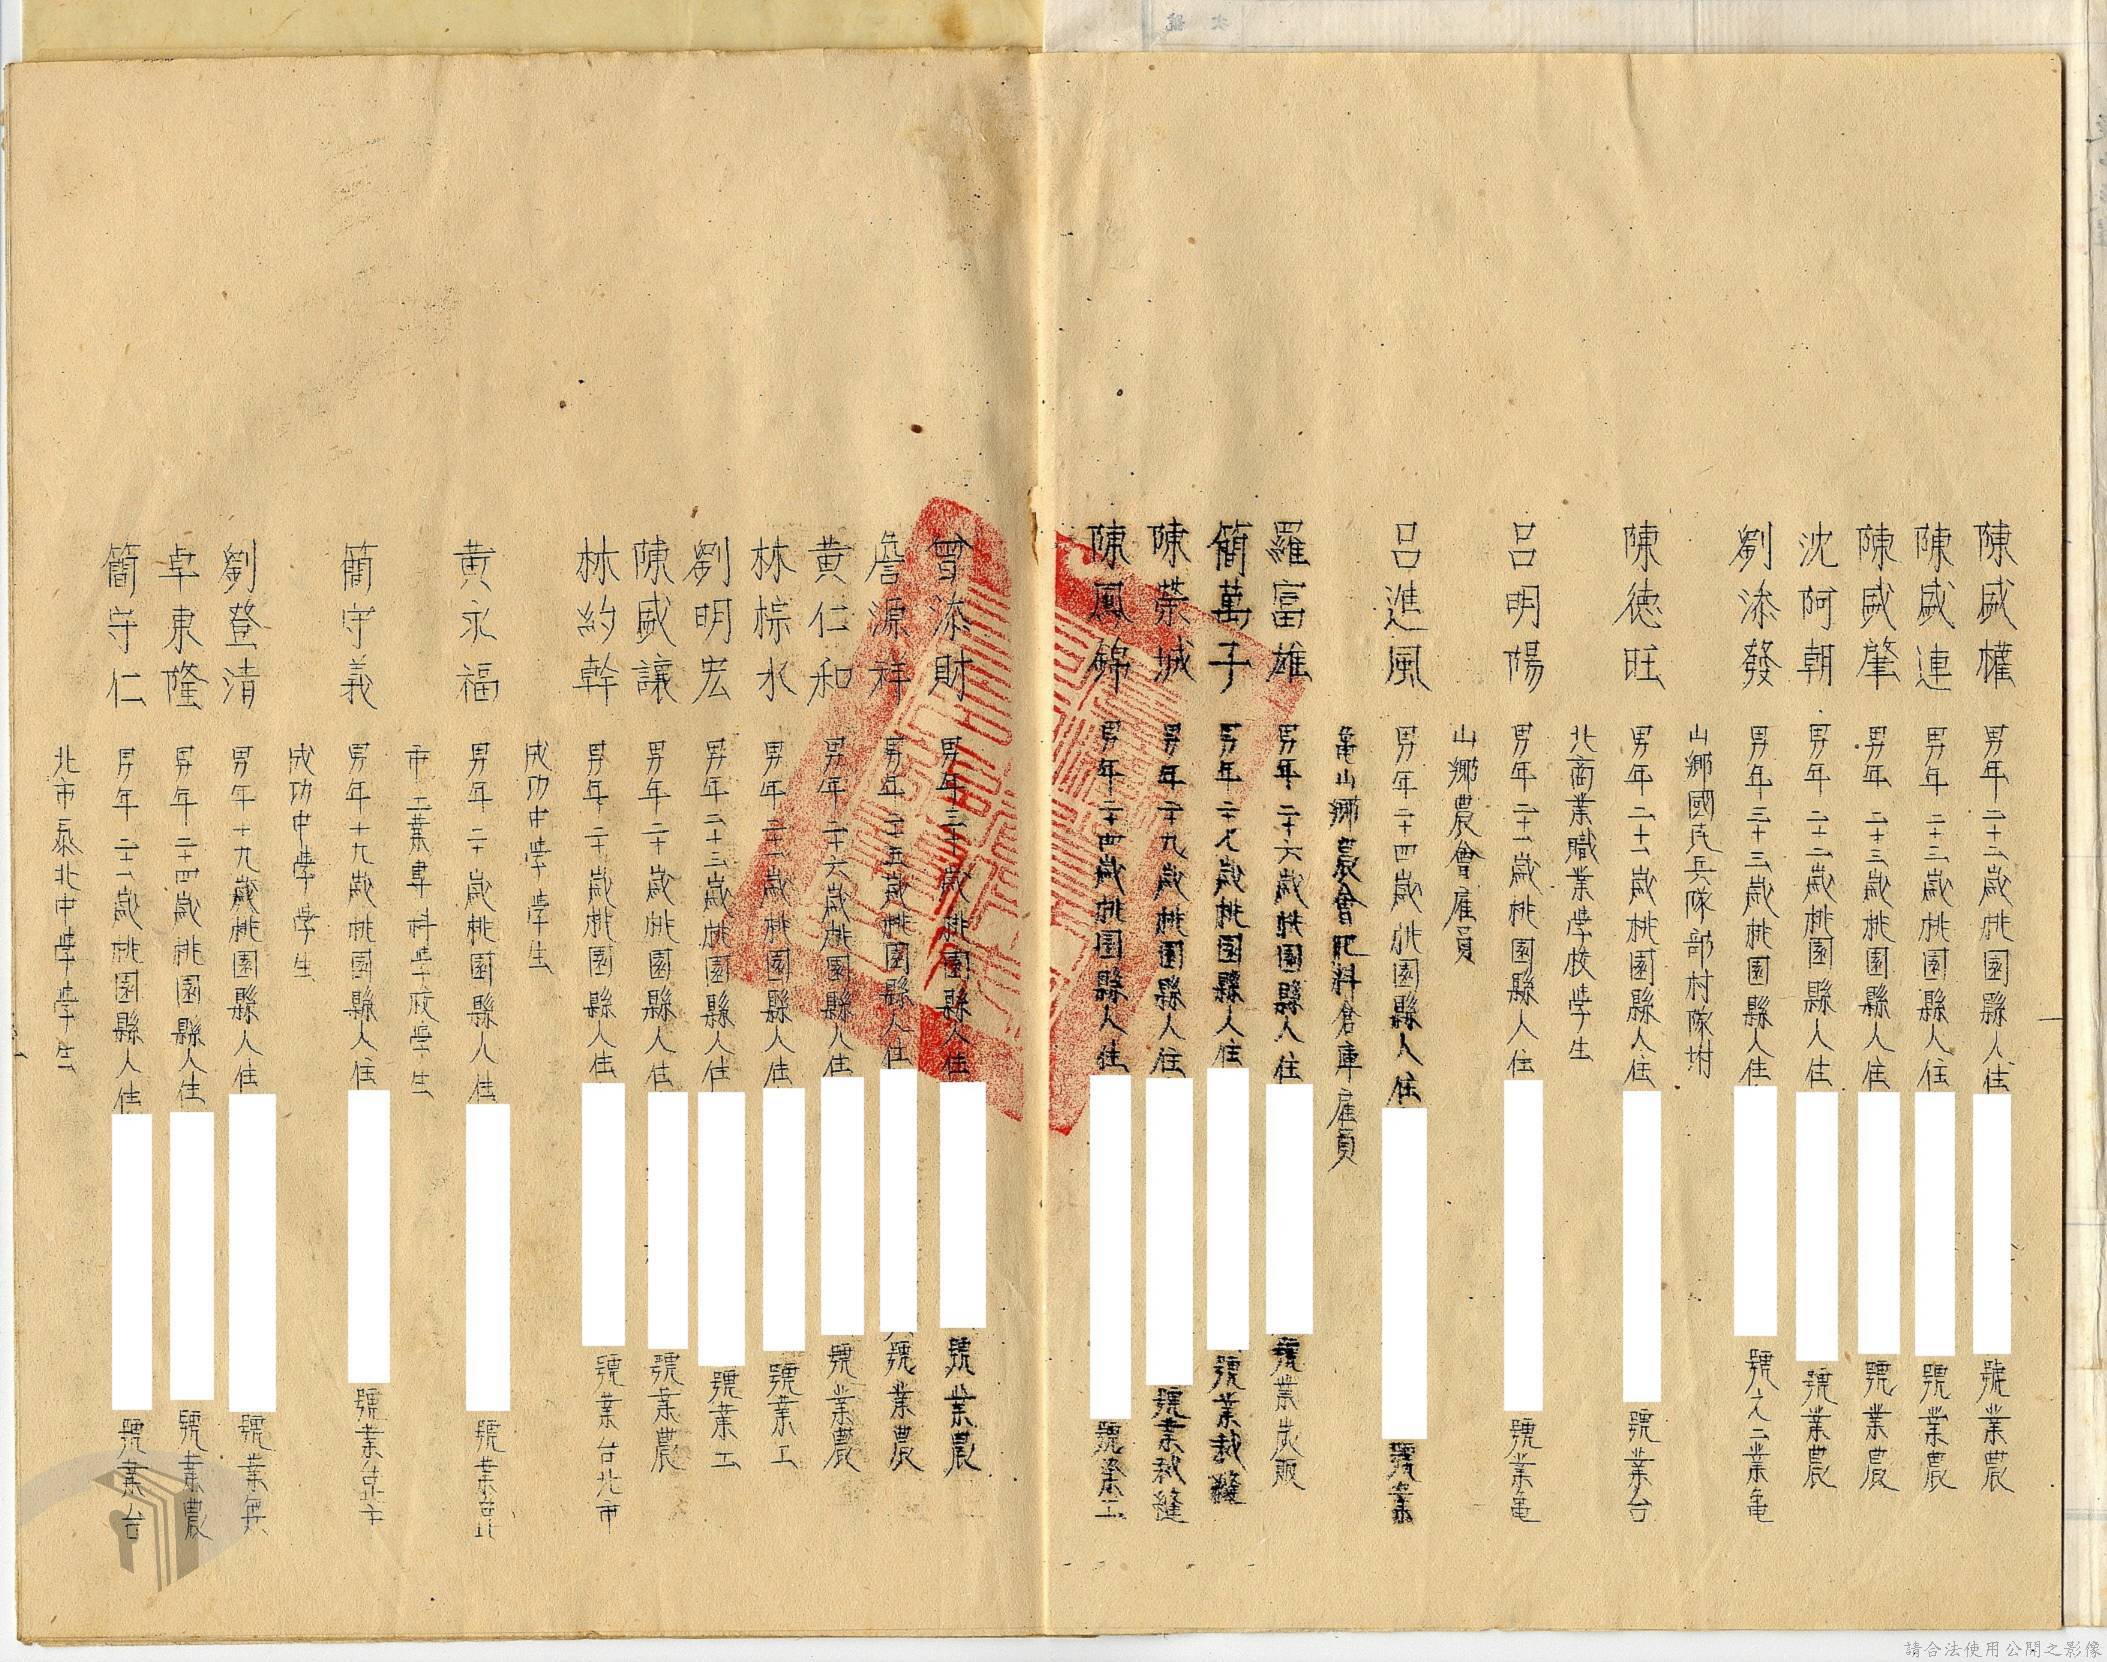 陳盛權 男年二十二歲桃園縣人住 號業農
陳盛連 男年二十三歲桃園縣人住 號業農
陳盛肇 男年二十三歲桃園縣人住 號業農
沈阿朝 男年二十二歲桃園縣人住 號業農
劉添發 男年三十三歲桃園縣人住 號之二業龜
山鄉國民兵隊部村隊坿
陳德旺 男年二十一歲桃園縣人住 號業台
北商業職業學校學生
呂明陽 男年二十一歲桃園縣人住 號業龜
山鄉農會雇員
呂進風 男年二十四歲桃園縣人住 號業
龜山鄉農會肥料倉庫雇員
羅富雄 男年二十六歲桃園縣人住 號業炭販
簡萬子 男年二十八歲桃園縣人住 號業裁縫
陳榮城 男年二十九歲桃園縣人住 號業裁縫
陳鳳錦 男年二十四歲桃園縣人住 號業工
曾添財 男年三十歲桃園縣人住 號業農
詹源祥 男年二十五歲桃園縣人住 號業農
黃仁和 男年二十六歲桃園縣人住 號業農
林棕水 男年二十一歲桃園縣人住 號業工
劉明宏 男年二十三歲桃園縣人住 號業工
陳盛讓 男年二十歲桃園縣人住 號業農
林約幹 男年二十歲桃園縣人住 號業台北市
成功中學學生
黃永福 男年二十歲桃園縣人住 號業台北
市工業專科學校學生
簡守義 男年十九歲桃園縣人住 號業北市
成功中學學生
劉登清 男年十九歲桃園縣人住 號業無
卓東隆 男年二十四歲桃園縣人住 號業農
簡守仁 男年二十一歲桃園縣人住 號業台
北市泰北中學學生
請合法使用公開之影像